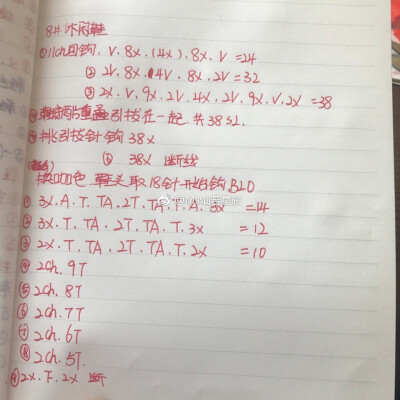 8# 休闲鞋
① 11ch回钩, V. 8x. (4x). 8x. V = 24
② 2V. 8x. 4V. 8x. 2V = 32
③ 2x. V. 9x. 2V. 4x. 2V. 9x. V. 2x = 38
重叠 引拔在一起. 共38sl.
挑引拔针钩 38x
⑥ 38x 断线
换咖色. 鞋头取18针开始钩BLO
① 3x. A. T. TA. 2T. TA. T. A. 3x = 14
② 3x. T. TA. 2T. TA. T. 3x = 12
③ 2x. T. TA. 2T. TA. T. 2x = 10
④ 2ch. 9T
⑤ 2ch. 8T
⑥ 2ch. 7T
⑦ 2ch. 6T
⑧ 2ch. 5T.
⑨ 2x. T. 2x 断